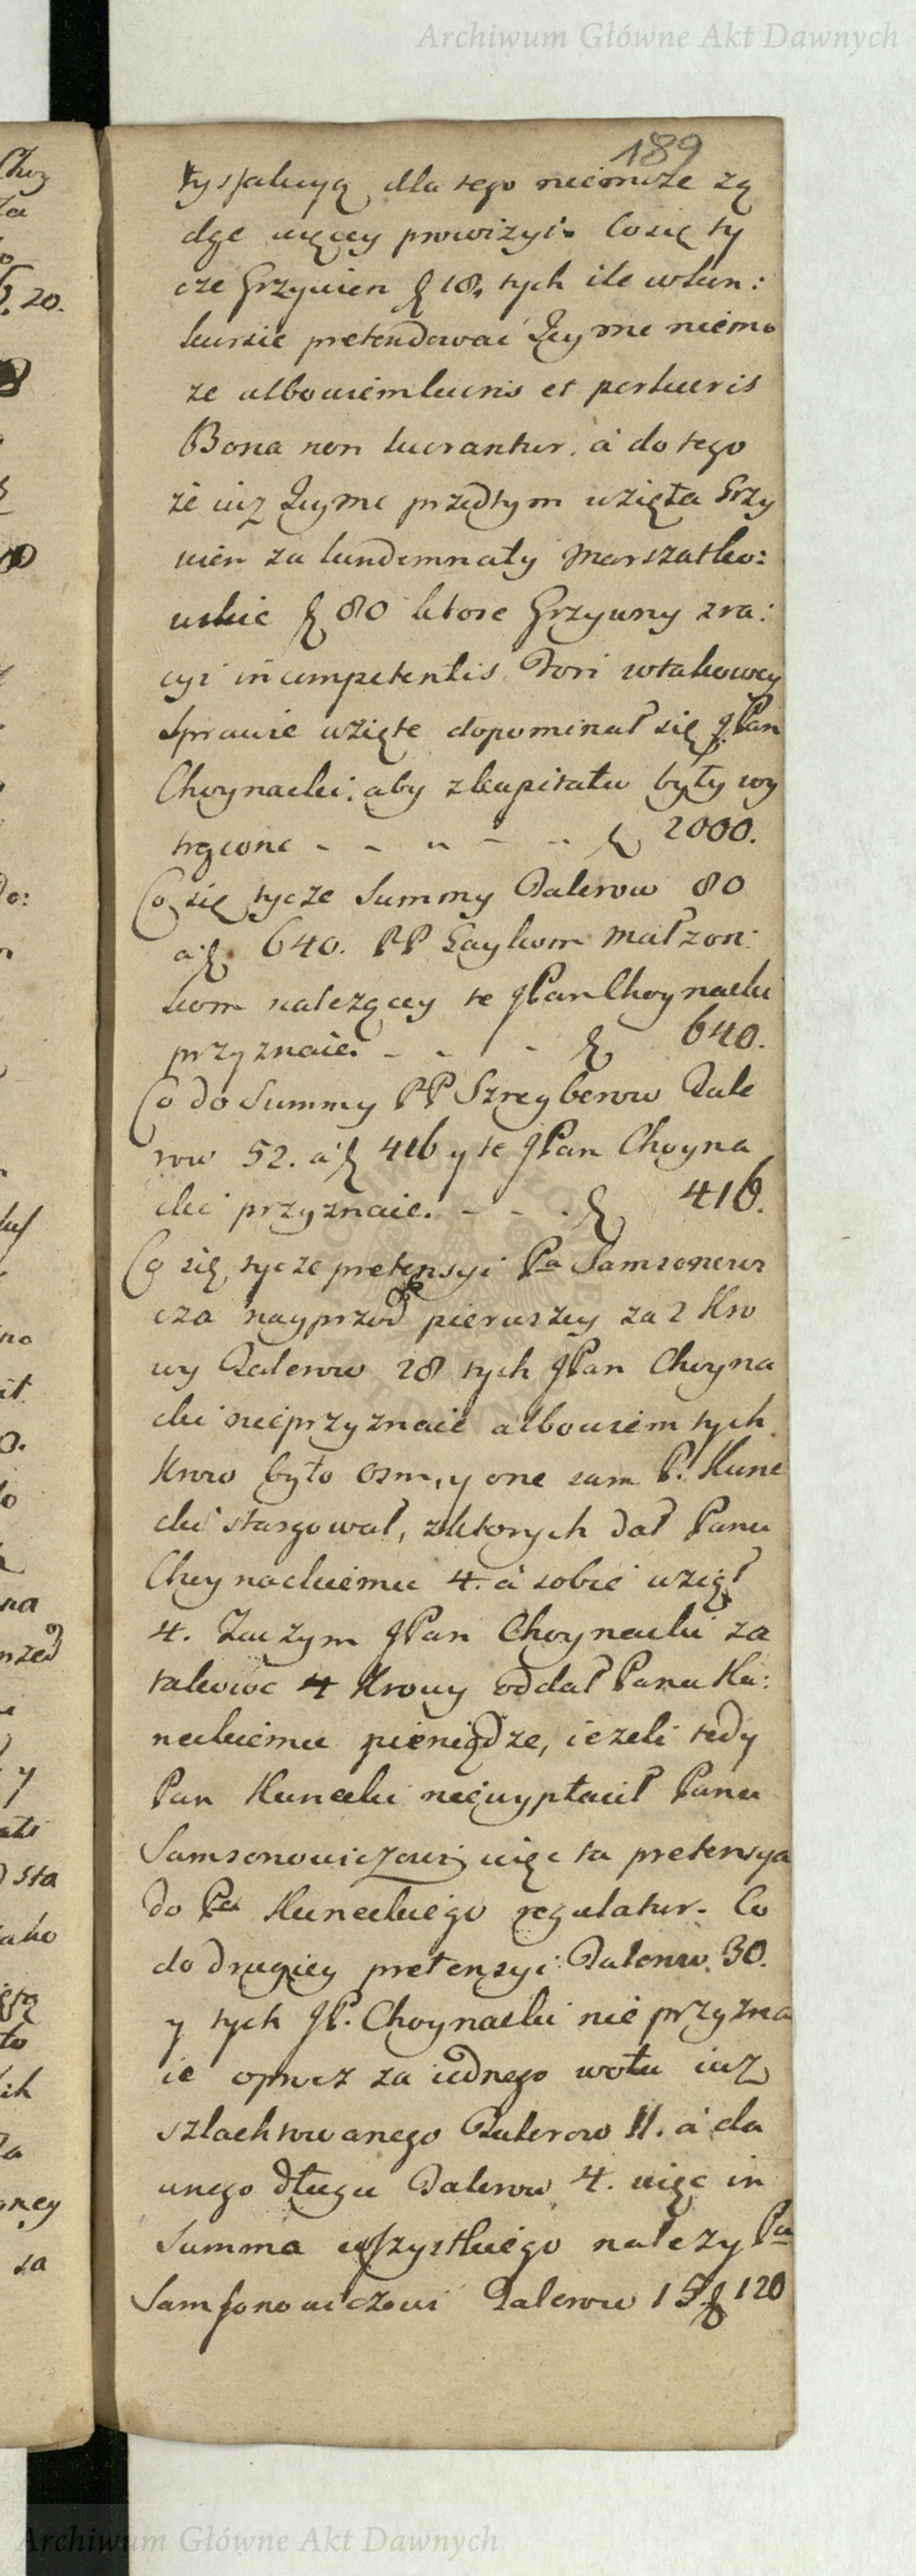 Archiwum Główne Akt Dawnych
189
tysfakcyą dla tego niemoże żą
dac więcey prowizyi. Co się ty
cze Grzywien f 18, tych ile w kon:
kursie pretendować Jeyme niemo
że albowiem lucris et perlucris
Bona non lucrantur. a do tego
że iuz Jeyme przedtym wzięta Grzy
wien za kondemnaty Marszałko:
wskie f 80 ktore Grzywny zra:
cyi incompetentis Fori w takowey
Sprawie wzięte dopominał się JPan
Choynacki, aby z kapitału były wy
trącone - - - - - f 2000.
Co się tycze Summy Talerow 80
a f 640. PP Laykom Małzon:
kom nalezącey te JPan Choynacki
przyznaie. - - - f 640.
Co do Summy PP Szreyberow Tale
row 52. a f 416 y te JPan Choyna
cki przyznaie. - - - f 416.
Co się tycze pretensyi Pa Samsonowi
cza nayprzod pierwszey za 2 Kro
wy Talerow 28 tych JPan Choyna
cki nieprzyznaie albowiem tych
Krow było osm, y one sam P. Kune
cki stargował, z ktorych dał Panu
Choynackiemu 4. a sobie wziął
4. Zaczym JPan Choynacki za
takowe 4 Krowy oddał Panu Ku:
neckiemu pieniądze, iezeli tedy
Pan Kunecki niewypłacił Panu
Samsonowiczowi, więc ta pretensya
do Pa Kuneckiego regulatur. Co
do drugiey pretensyi Talerow 30.
y tych JP. Choynacki nie przyzna
ie oprocz za iednego wołu iuz
szlachtowanego Talerow 11. a da
wnego długu Talerow 4. więc in
Summa wszystkiego nalezy Pu
Samsonowiczowi Talerow 15 f 120
Archiwum Główne Akt Dawnych